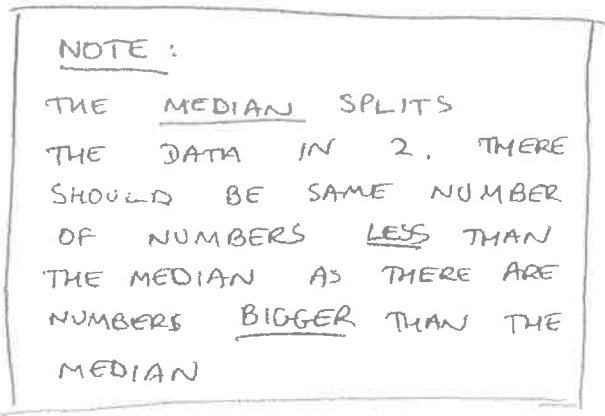 NOTE :
THE MEDIAN SPLITS
THE DATA IN 2. THERE
SHOULD BE SAME NUMBER
OF NUMBERS LESS THAN
THE MEDIAN AS THERE ARE
NUMBERS BIGGER THAN THE
MEDIAN